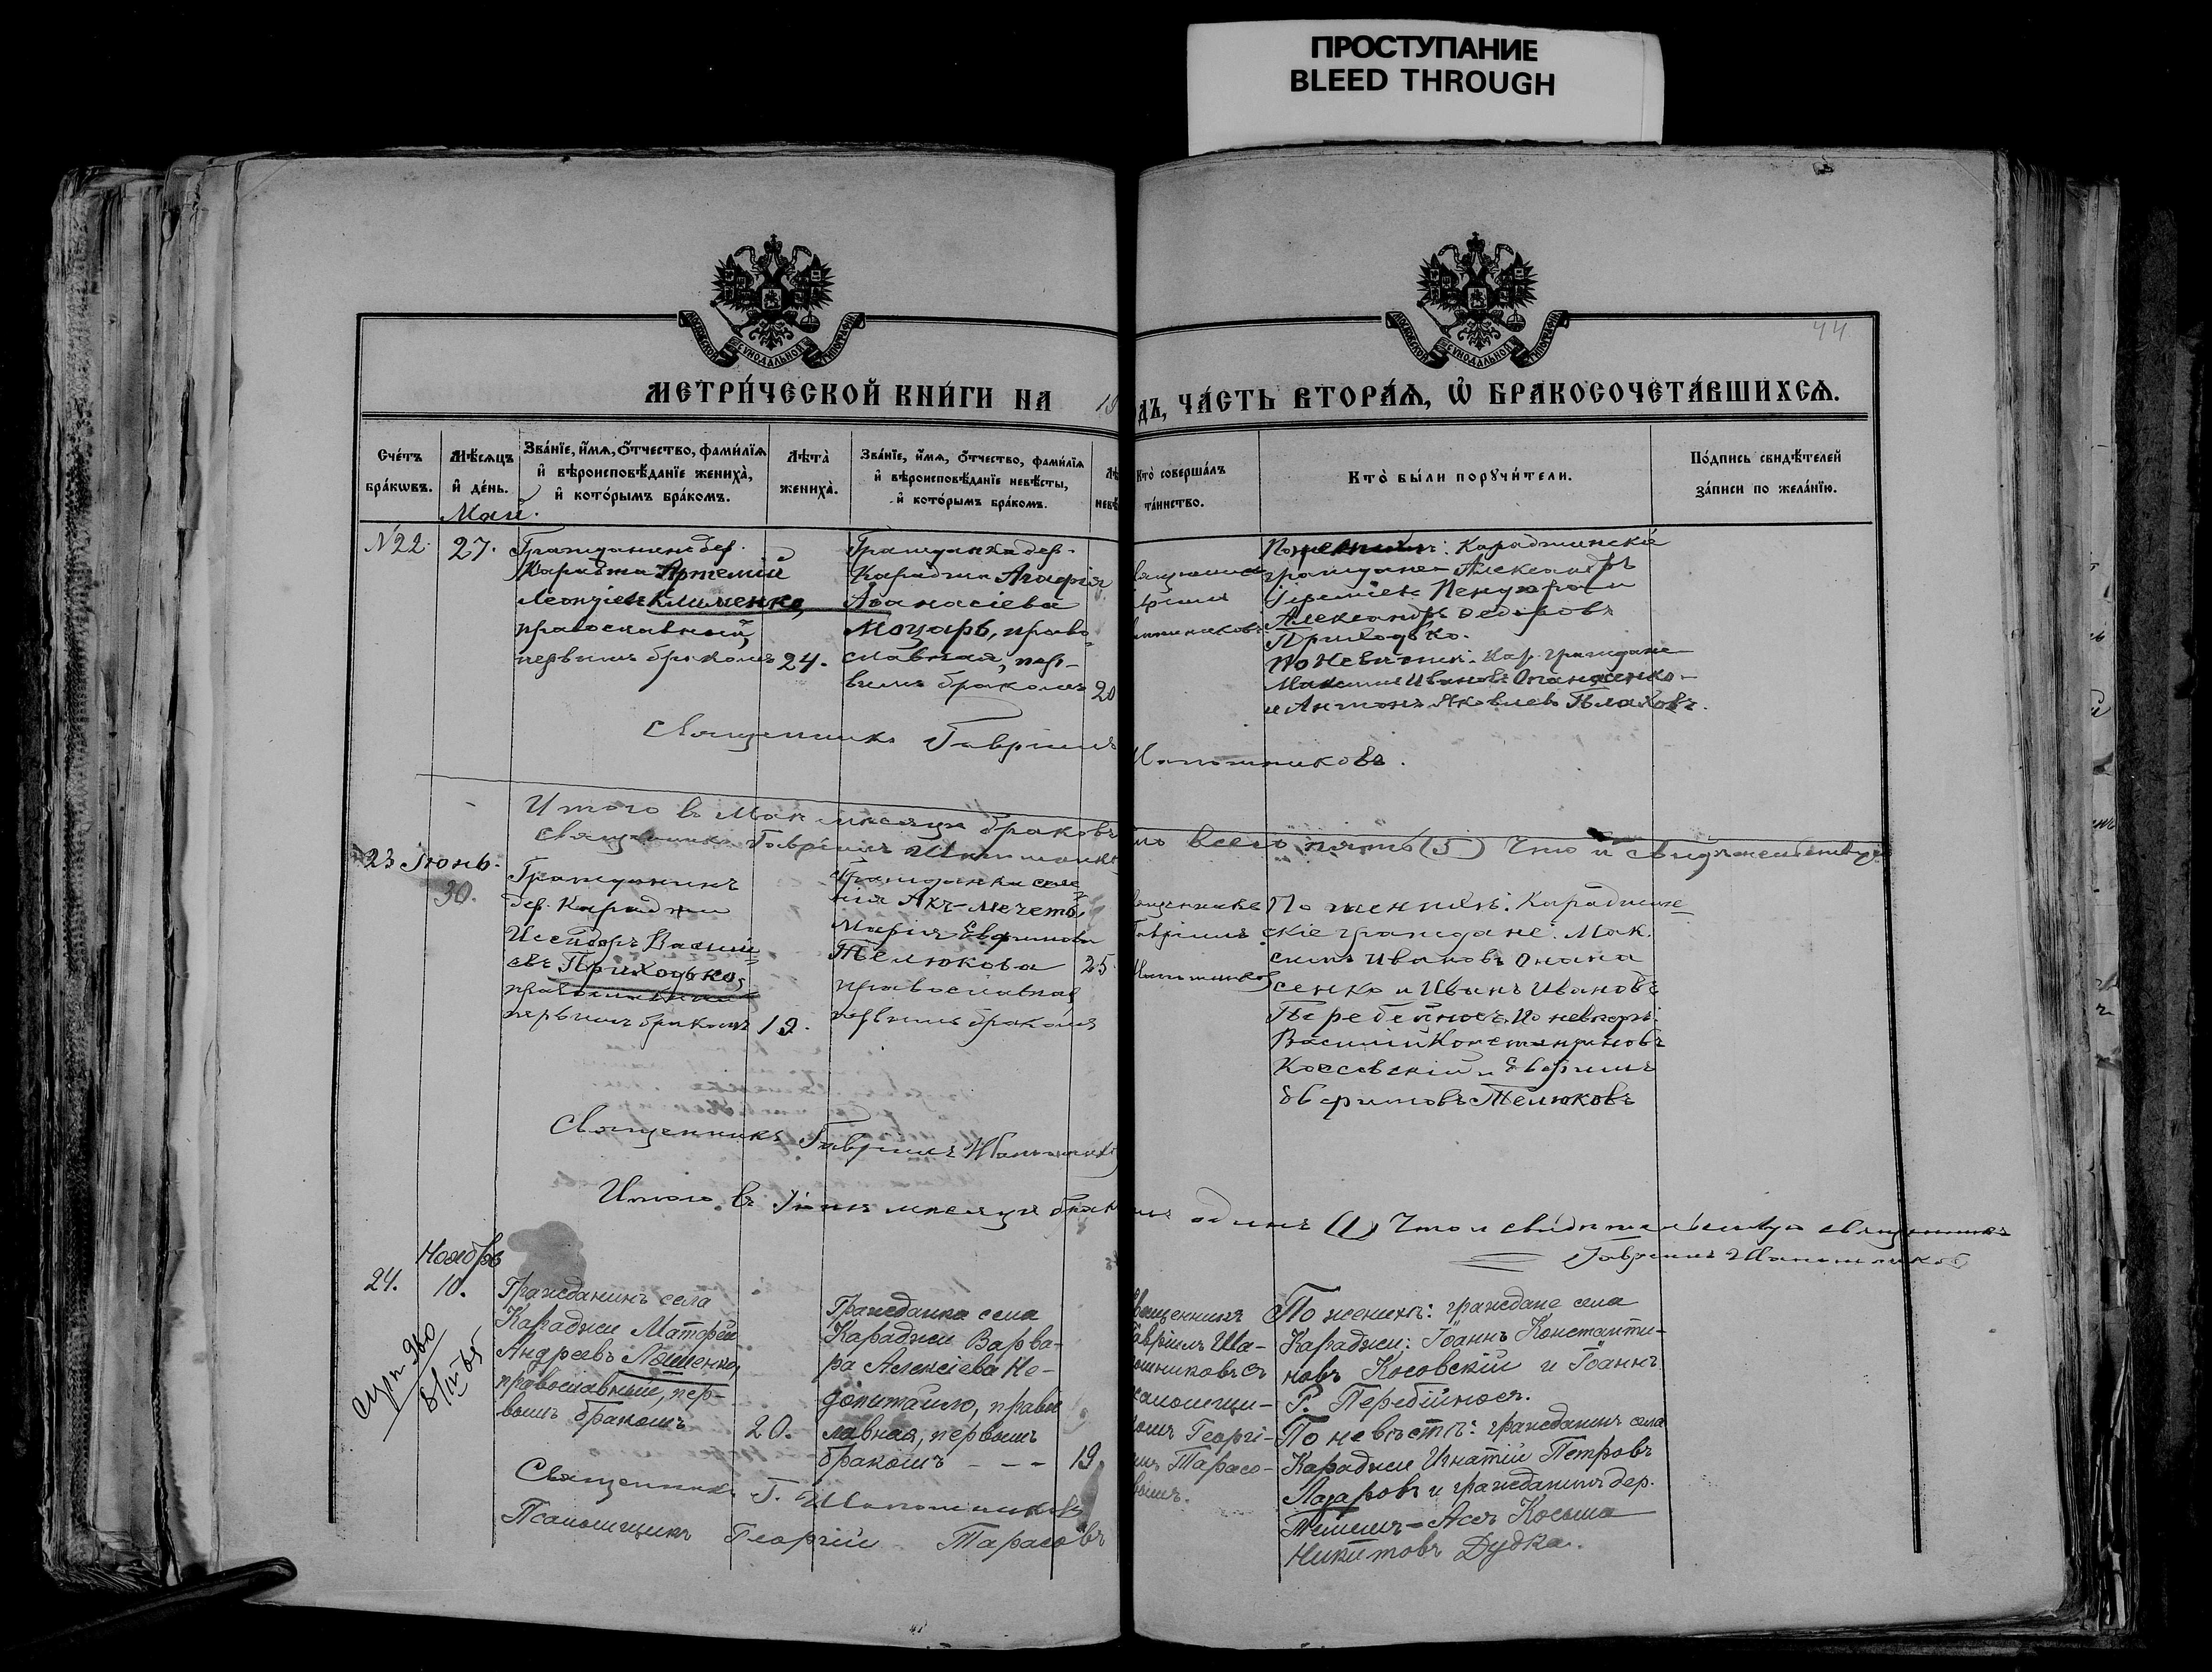 ПРОСТУПАНИЕ
BLEED THROUGH
44
МОСКОВСКОЙ СѴНОДАЛЬНОЙ ТИПОГРАФІИ
МОСКОВСКОЙ СѴНОДАЛЬНОЙ ТИПОГРАФІИ
МЕТРИ́ЧЕСКОЙ КНИ́ГИ НА 19
ДЪ, ЧА́СТЬ ВТОРА́Ѧ, Ѡ҆ БРАКОСОЧЕТА́ВШИХСѦ.
Сче́тъ бра́кѡвъ.
Мѣ́сѧцъ и҆ де́нь.
Зва́нїе, и҆́мѧ, ѻ҆́тчество, фами́лїѧ
и҆ вѣроисповѣ́данїе жениха̀,
и҆ кото́рымъ бра́комъ.
Лѣта̀ жениха̀.
Зва́нїе, и҆́мѧ, ѻ҆́тчество, фами́лїѧ
и҆ вѣроисповѣ́данїе невѣ́сты,
и҆ кото́рымъ бра́комъ.
Лѣ
невѣ
Кто̀ соверша́лъ
та́инство.
Кто̀ бы́ли порꙋчи́тели.
По́дпись свидѣ́телей
за́писи по жела́нїю.
Май.
N22.
27.
Гражданинъ дер.
Караджи Артемій
Леонтіевъ Клименко,
православный,
первымъ бракомъ
24.
Гражданка дер.
Караджи Агафія
Аѳанасіева
Моцарь, право-
славная, пер-
вымъ бракомъ
20
По женихѣ: Караджинскіе
граждане Александръ
Александръ Ѳедоровъ
Приходько.
По невѣстѣ: Кар. граждане
Максимъ Ивановъ Опанасенко
и Антонъ Яковлевъ Плаховъ.
Священникъ Гавріилъ
Шапошниковъ.
Итого въ Маѣ мѣсяцѣ браковъ
всего пять (5) Что и свидѣтельствую
Священникъ Гавріилъ Шапошник
23 Іюнь.
30.
Гражданинъ
дер. Караджи
Исидоръ Василі-
евъ Приходько,
православный
первымъ бракомъ
19.
Гражданка селе-
нія Акъ-Мечеть
Марія Евфимова
Телюкова
православная
первымъ бракомъ
25
Гавріилъ
По женихѣ: Караджин-
скіе граждане: Мак-
симъ Ивановъ Опана
сенко и Иванъ Ивановъ
Перебейносъ. По невѣстѣ:
Василій Константиновъ
Коссовскій и Евфимъ
Евфимовъ Телюковъ
Священникъ Гавріилъ Шапошник
Итого въ Іюнѣ мѣсяцѣ брак
одинъ (1) Что и свидѣтельствую священникъ
Гавріилъ Шапошников
Ноябрь
24.
10.
Гражданинъ села
Караджи Матѳей
Андреевъ Ляшенко,
православный, пер-
вымъ бракомъ
20.
Гражданка села
Караджи Варва-
ра Алексіева Не-
допитайло, правос
лавная, первымъ
бракомъ - - -
19.
вященникъ
авріилъ Ша-
ошниковъ съ
саломщи-
омъ Георгі-
мъ Тарасо-
вымъ.
По женихѣ: граждане села
Караджи: Іоаннъ Константи-
новъ Косовскій и Іоаннъ
Р. Перебійносъ.
По невѣстѣ: гражданинъ села
Караджи Игнатій Петровъ
Лазаровъ и гражданинъ дер.
Козьма
Никитовъ Дудка.
Священникъ Г. Шапошниковъ
Псаломщикъ Георгій Тарасовъ